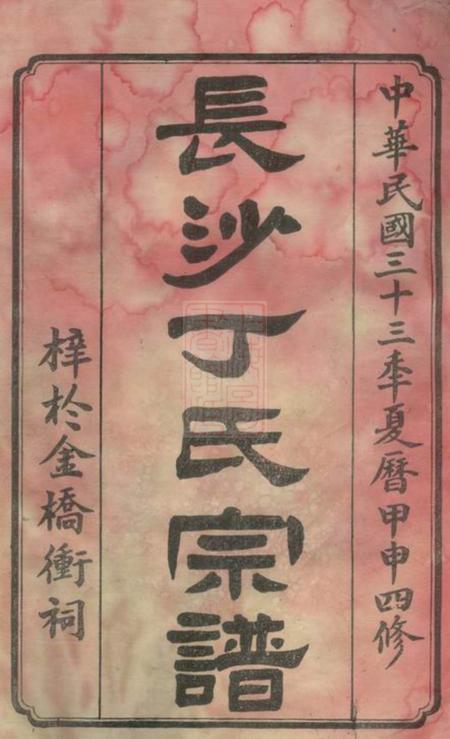 中華民國三十三季夏曆甲申四修
長沙丁氏宗譜
梓於金橋衝祠